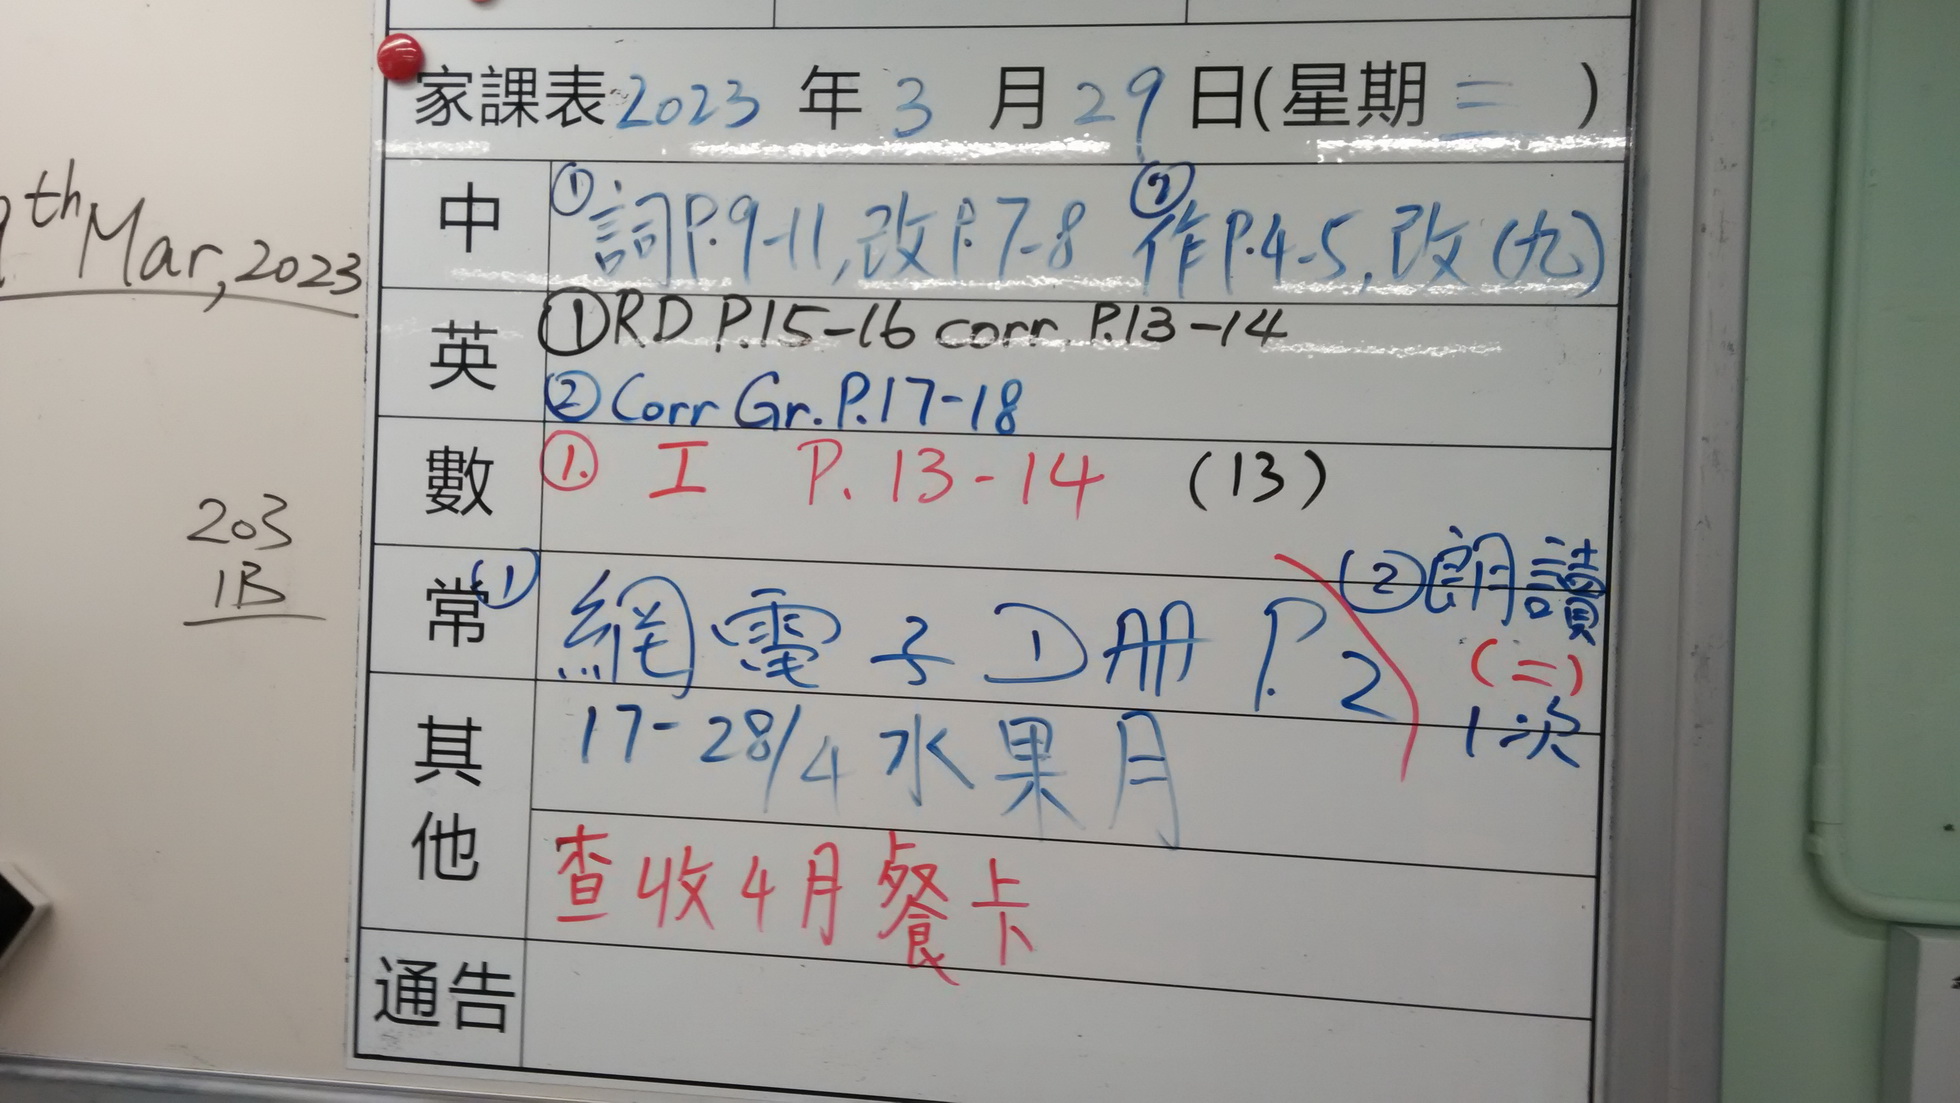 家課表 2023 年 3 月 29 日(星期三)
th Mar, 2023
203
1B
中 ① 詞P.9-11,改P.7-8 ② 作P.4-5,改(九)
英 ① RD P.15-16 corr. P.13-14
② Corr Gr. P.17-18
數 ①. 工 P. 13-14 (13)
常 (1) 網電子①册 P. 2
(2) 朗讀
(二)
1次
其他 17-28/4 水果月
查收4月餐卡
通告